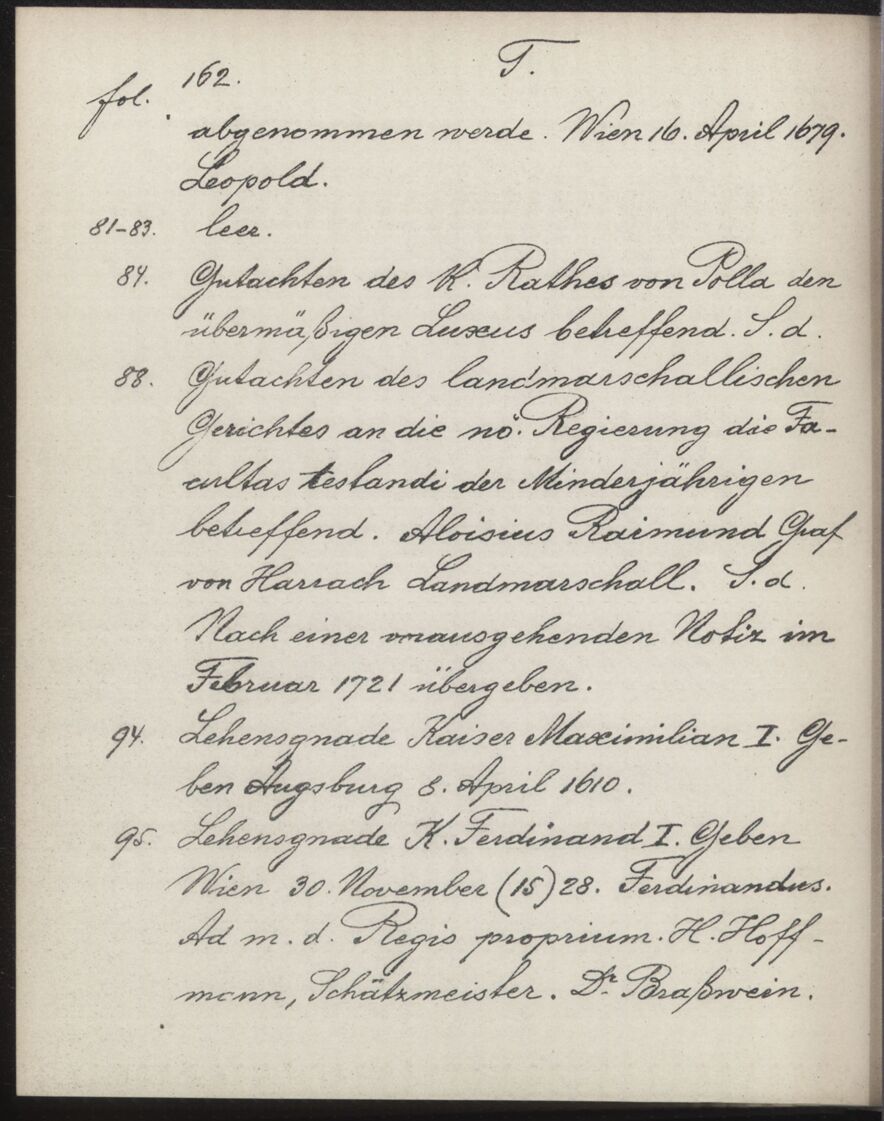 162. T.
fol.
abgenommen werde. Wien 16. April 1679.
Leopold.
81-83. leer.
84. Gutachten des K. Rathes von Polla den
übermäßigen Luxus betreffend. S. d.
88. Gutachten des landmarschallischen
Gerichtes an die nö. Regierung die Fa-
cultas testandi der Minderjährigen
betreffend. Aloisius Raimund Graf
von Harrach Landmarschall. S. d.
Nach einer vorausgehenden Notiz im
Februar 1721 übergeben.
94. Lehensgnade Kaiser Maximilian I. Ge-
ben Augsburg 8. April 1610.
95. Lehensgnade K. Ferdinand I. Geben
Wien 30. November (15)28. Ferdinandus.
Ad m. d. Regis proprium. H. Hoff-
mann, Schätzmeister. Dr. Braßwein.